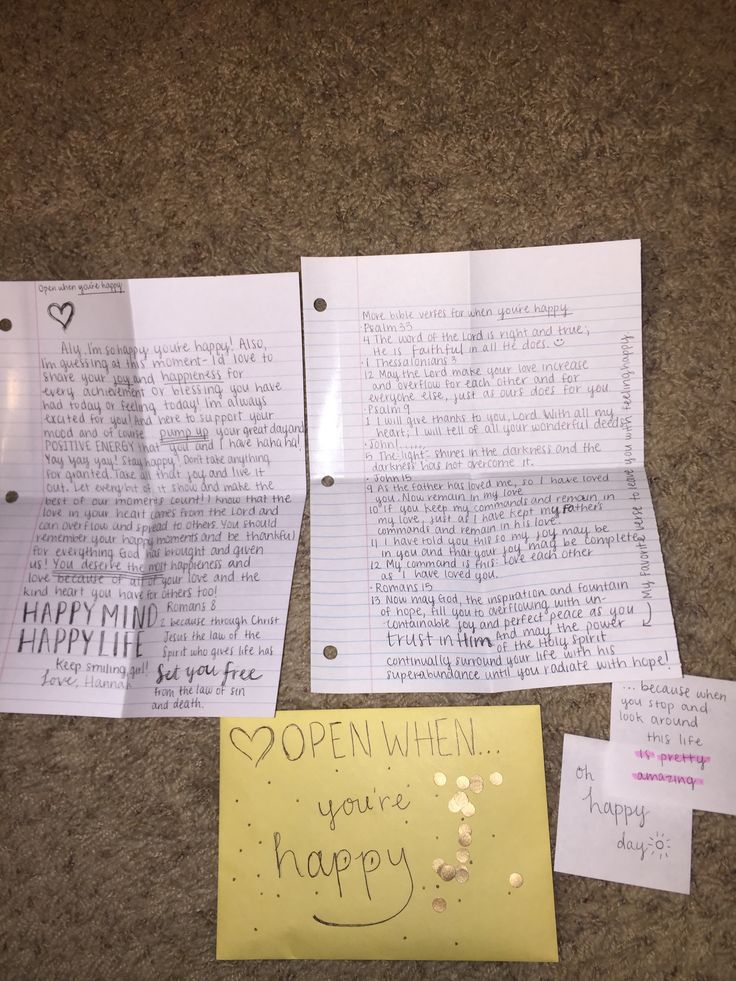 Open when you're happy
Aly, I'm so happy you're happy! Also,
I'm guessing at this moment- I'd love to
share your joy and happieness for
every achievement or blessing you have
had today or feeling today! I'm always
excited for you! And here to support your
mood and of course pump up your great day and
POSITIVE ENERGY that you and I have haha ha!
Yay yay yay! Stay happy! Don't take anything
for granted. Take all that joy and live it
out. Let every bit of it should and make the
best of our moments count! I know that the
love in your heart comes from the Lord and
can overflow and spread to others. You should
remember your happy moments and be thankful
for everything God has brought and given
us! You deserve the most happiness and
love because of all of your love and the
kind heart you have for others too!
HAPPY MIND
HAPPY LIFE
Keep smiling, girl!
Love, Hannah
Romans 8
2 because through Christ
Jesus the law of the
Spirit who gives life has
set you free
from the law of sin
and death.
More bible verses for when you're happy
·Psalm 33
4 The word of the Lord is right and true;
He is faithful in all He does.
·1 Thessalonians 3
12 May the Lord make your love increase
and overflow for each other and for
everyone else, just as ours does for you
·Psalm 9
1 I will give thanks to you, Lord. With all my
heart; I will tell of all your wonderful deeds
·John 1
5 The light shines in the darkness and the
darkness has not overcome it.
·John 15
9 As the father has loved me, so I have loved
you. Now remain in my love
10 If you keep my commands and remain in
my love, just as I have kept my Father's
commands and remain in his love.
11 I have told you this so my joy may be
in you and that your joy may be complete
12 My command is this: love each other
as I have loved you.
·Romans 15
13 Now may God, the inspiration and fountain
of hope, fill you to overflowing with un-
containable joy and perfect peace as you
trust in Him. And may the power
of the Holy Spirit
continually surround your life with his
superabundance until you radiate with hope!
My favorite verse to leave you with feeling happy
OPEN WHEN...
you're
happy
... because when
you stop and
look around
this life
is pretty
amazing
oh
happy
day